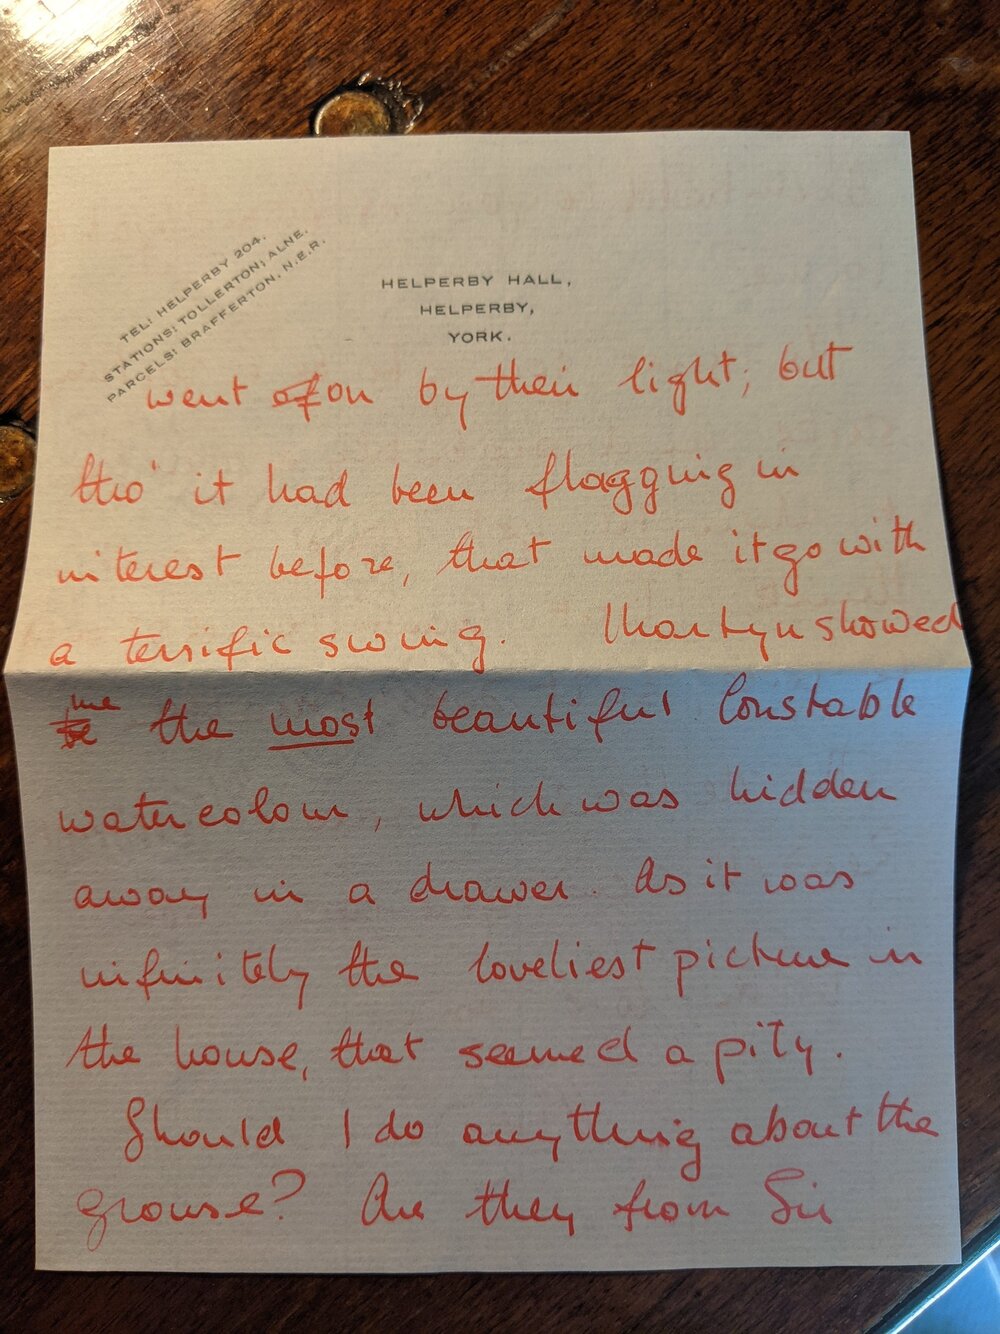 TEL: HELPERBY 204.
STATIONS: TOLLERTON; ALNE.
PARCELS: BRAFFERTON, N.E.R.
HELPERBY HALL,
HELPERBY,
YORK.
went on by their light; but
tho' it had been flagging in
interest before, that made it go with
a terrific swing. Martyn showed
me the most beautiful Constable
watercolour, which was hidden
away in a drawer. As it was
infinitely the loveliest picture in
the house, that seemed a pity.
Should I do anything about the
grouse? Are they from Sir